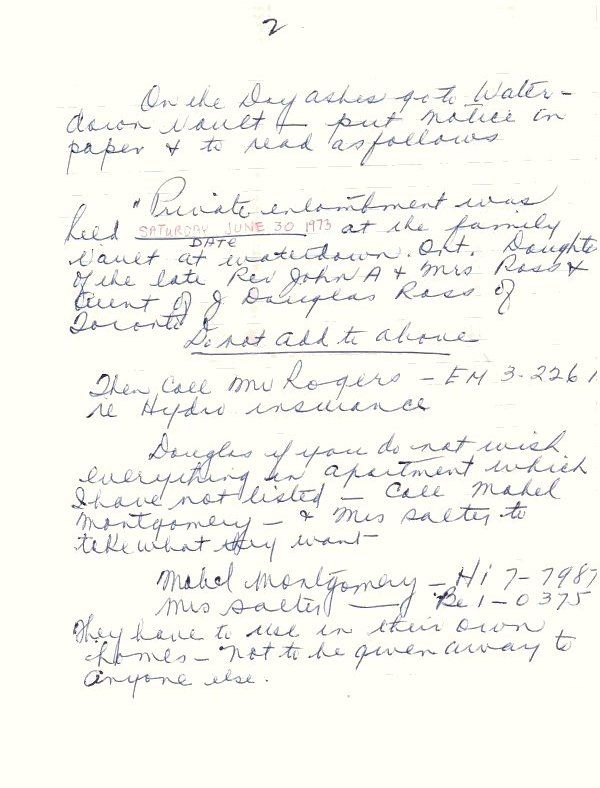 2
On the Day ashes go to Water-
down Vault - put notice in
paper & to read as follows
"Private entombment was
held SATURDAY JUNE 30 1973 at the family
DATE
Vault at Waterdown. Ont. Daughte
of the late Rev John A & Mrs Ross &
Aunt of J Douglas Ross of
Toronto
Do not add to above
Then Call Mr Rogers - EM 3-2261
re Hydro insurance
Douglas if you do not wish
everything in apartment which
I have not listed - Call Mabel
Montgomery - & Mrs Salter to
take what they want -
Mabel Montgomery - Hi 7-7987
Mrs Salter - Be 1-0375
They have to use in their own
homes - Not to be given away to
anyone else.